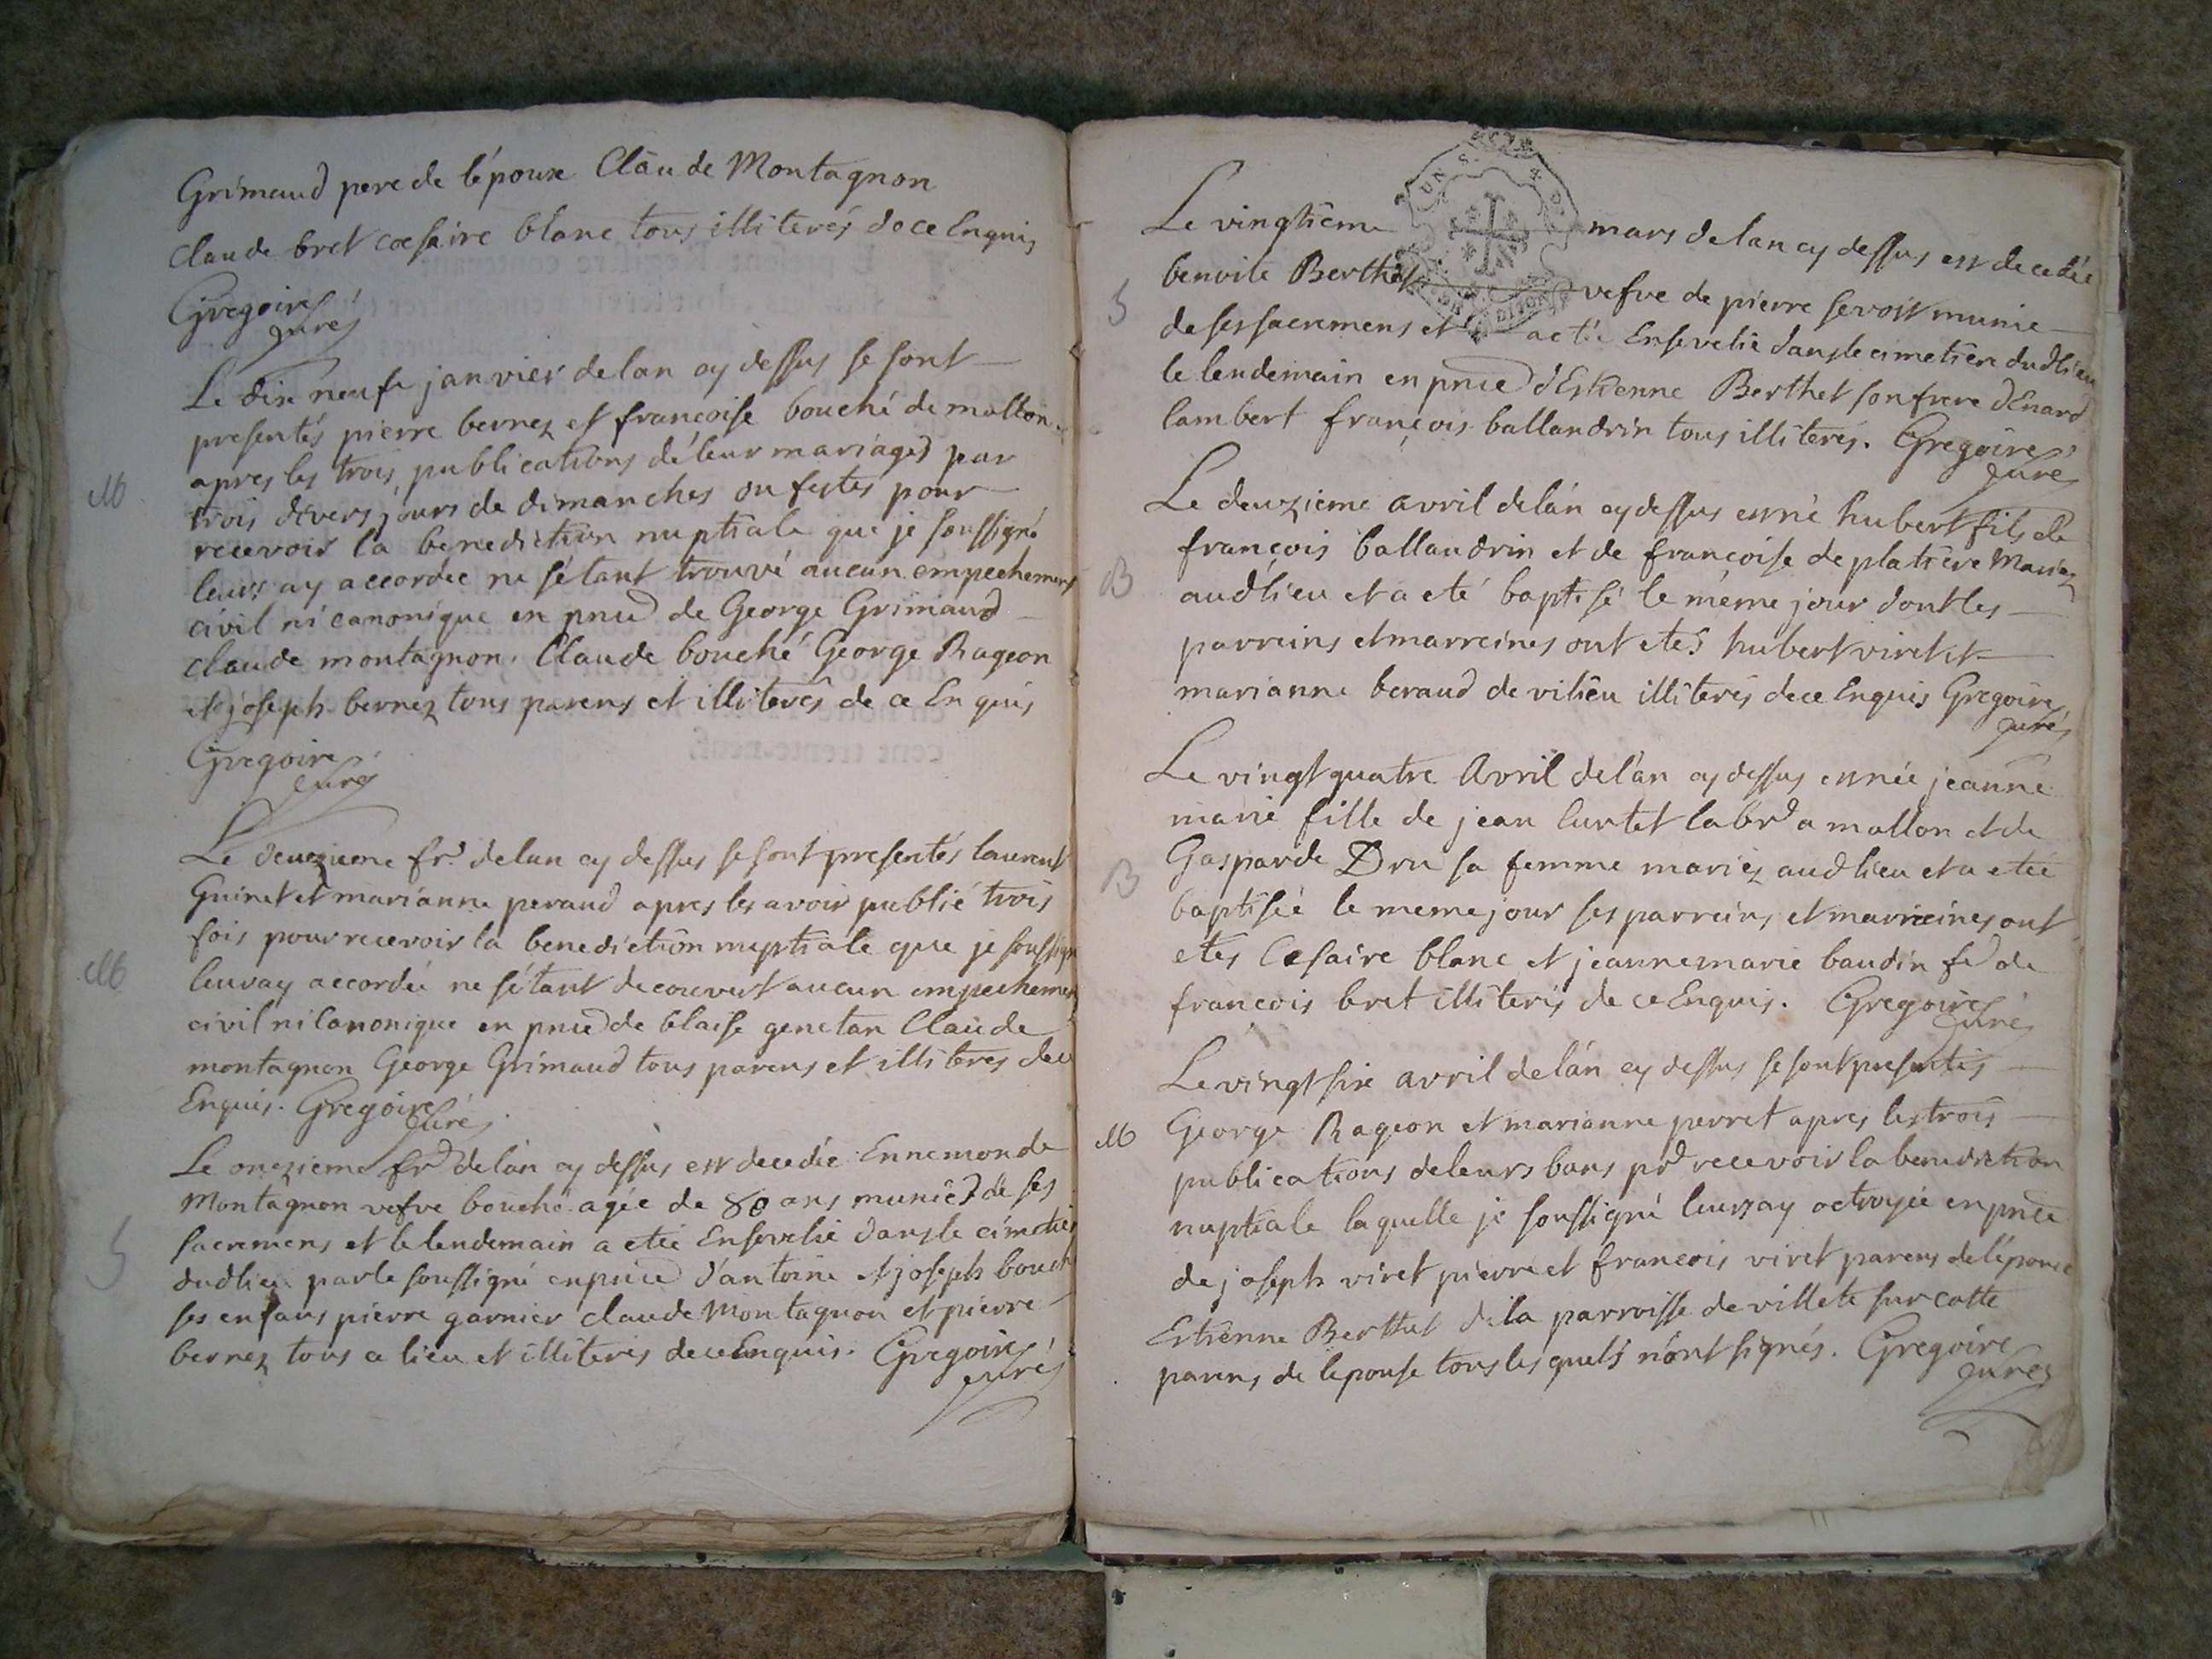 Grimaud pere de lépouse Claude Montagnon
Claude bret coesaire blanc tous illiterés de ce Enquis
Gregoire
curé
Le dix neufe janvier de lan cy dessus se sont
presentés pierre bernez et francoise bouché de mollon
apres les trois publications de leur mariage par
M
trois divers jours de dimanches ou festes pour
recevoir la benediction nuptiale que je soussigné
leurs ay accordée ne sétant trouvé aucun empechement
civil ni canonique en pnce de George Grimaud
claude montagnon. Claude bouché George Rageon
et joseph bernez tous parens et illiterés de ce Enquis
Gregoire
curé
Le deuzieme fr. de lan cy dessus se sont presentés laurent
Guinet et marianne peraud apres les avoir publié trois
fois pour recevoir la benediction nuptiale que je soussigné
M
leur ay accordée ne sétant decouvert aucun empechement
civil ni Canonique en pnce de blaise genetan Claude
montagnon George Grimaud tous parens et illiteres de ce
Enquis. Gregoire
curé
Le onzieme fr de lán cy dessus est decedée Ennemonde
Montagnon vefve bouché agée de 80 ans munie de ses
sacremens et le lendemain a etée Ensevelie dans le cimetier
S
dudlieu par le soussigné en pnce d'antoine et joseph bouché
ses enfans pierre garnier claude Montagnon et pierre
bernez tous ce lieu et illiterés de ce Enquis. Gregoire
curé
Le vingtième mars de lan cy dessus est decedée
benoite Berthet vefve de pierre sevoz munie
S
de ses sacremens et a eté Ensevelie dans le cimetière dudlieu
le lendemain en pnce d'Estienne Berthet son frere dEnard
lambert françois ballandrin tous illiterés. Gregoire
curé
Le deuzieme avril de lán cy dessus est né hubert fils de
françois ballandrin et de francoise de platiere Mariez
B
audlieu et a eté baptisé le méme jour dont les
parreins et marreines ont etés hubert viret et
marianne beraud de vilieu illiterés de ce Enquis Gregoire
curé
Le vingt quatre Avril de lán cy dessus est née jeanne
marie fille de jean Curtet labr a mollon et de
Gasparde Dru sa femme mariez audlieu et a etée
B
baptisée le meme jour ses parreins et marreines ont
etés Cesaire blanc et jeanne marie baudin fe de
francois bret illiterés de ce Enquis. Gregoire
curé
Le vingt six avril de lán cy dessus se sont presentés
M
George Rageon et marianne perret apres les trois
publications de leurs bans pr recevoir la benediction
nuptiale laquelle je soussigné leurs ay octroyée en pnce
de joseph viret pierre et francois viret parens de lépouse
Estienne Berthet de la parroisse de villete sur cotte
parens de lepouse tous les quels nónt signés. Gregoire
curé